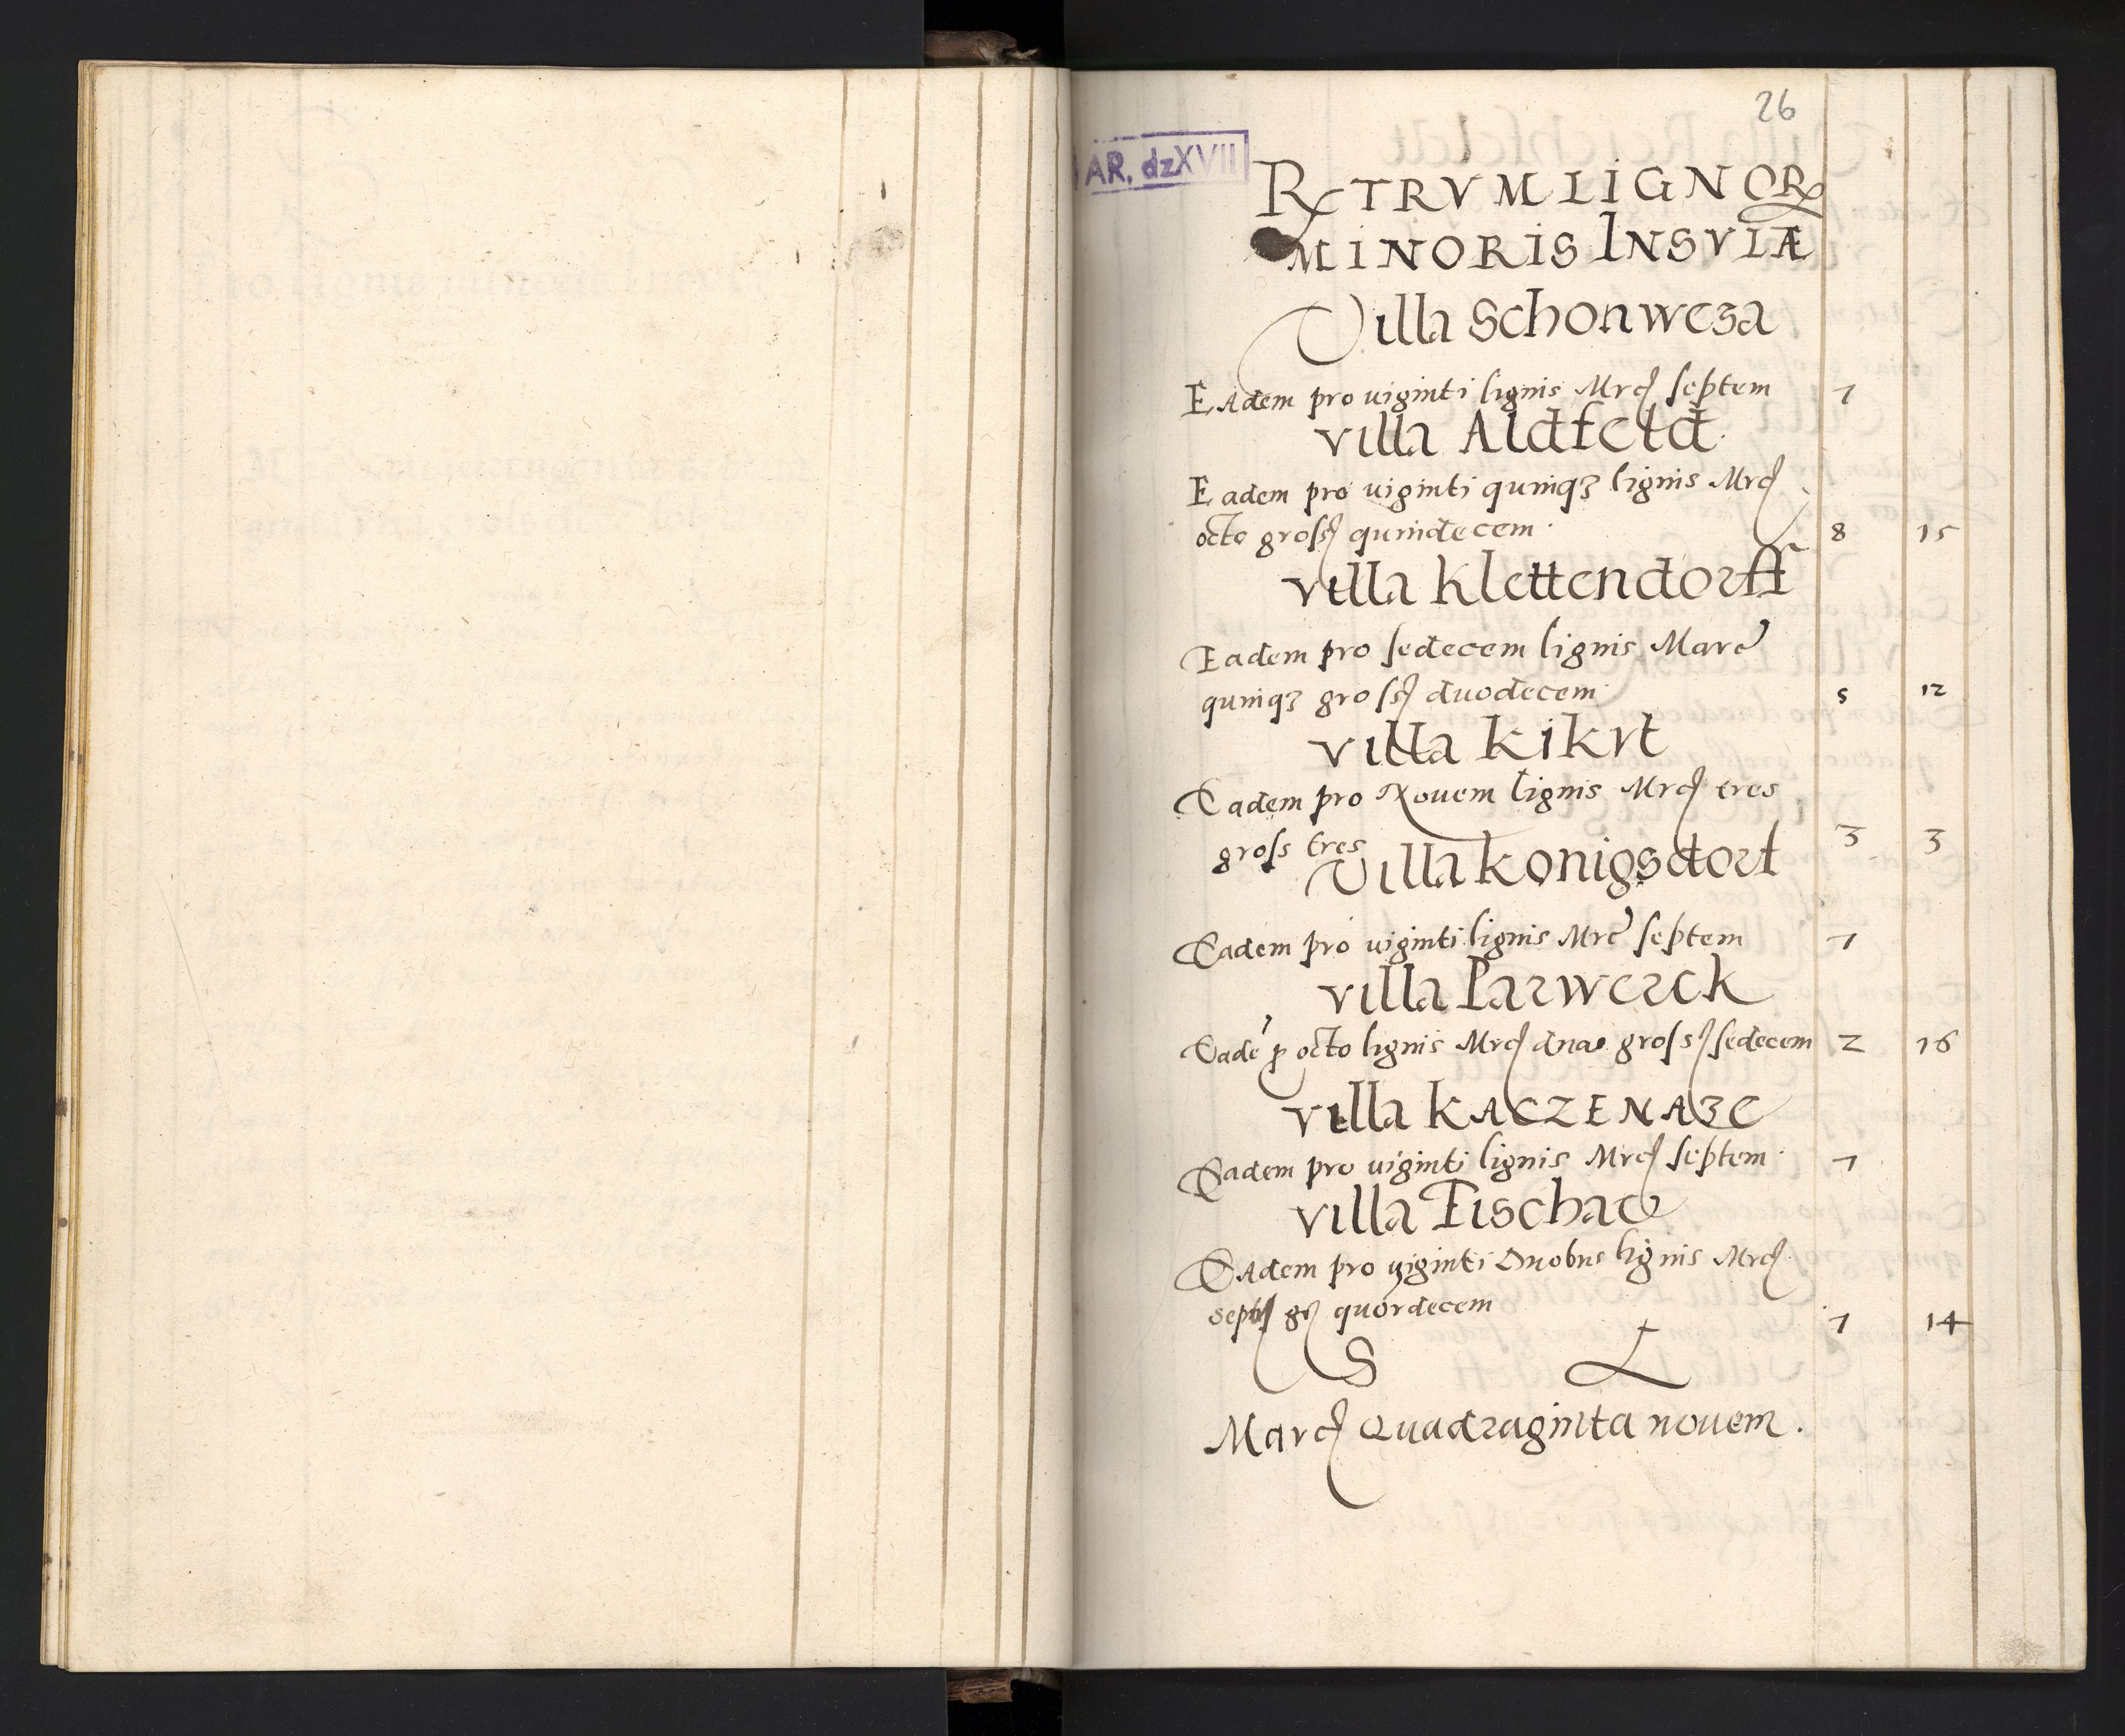 26
AR. dzXVII
RTRVM LIGNOR
MINORIS INSVLÆ
Villa Schonweza
EAdem pro uiginti lignis Mrc septem 7
villa Aldfeld.
Eadem pro uiginti quinqz lignis Mrc
octo gross quindecem 8 15
villa Klettendorff
Eadem pro sedecem lignis Marc
quinqz gross duodecem 5 12
villa Kikvt
Eadem pro Nouem lignis Mrc tres
gross tres 3 3
Villa Konigsdorf
Eadem pro uiginti lignis Mrc septem 7
villa Parwerck
Eade p octo lignis Mrc duas gross sedecem 2 16
villa KACZENAZE
Eadem pro uiginti lignis Mrc septem 7
villa Fischaw
EAdem pro uiginti Duobus lignis Mrc
septe gr quordecem 7 14
S L
Marc Quadraginta nouem.